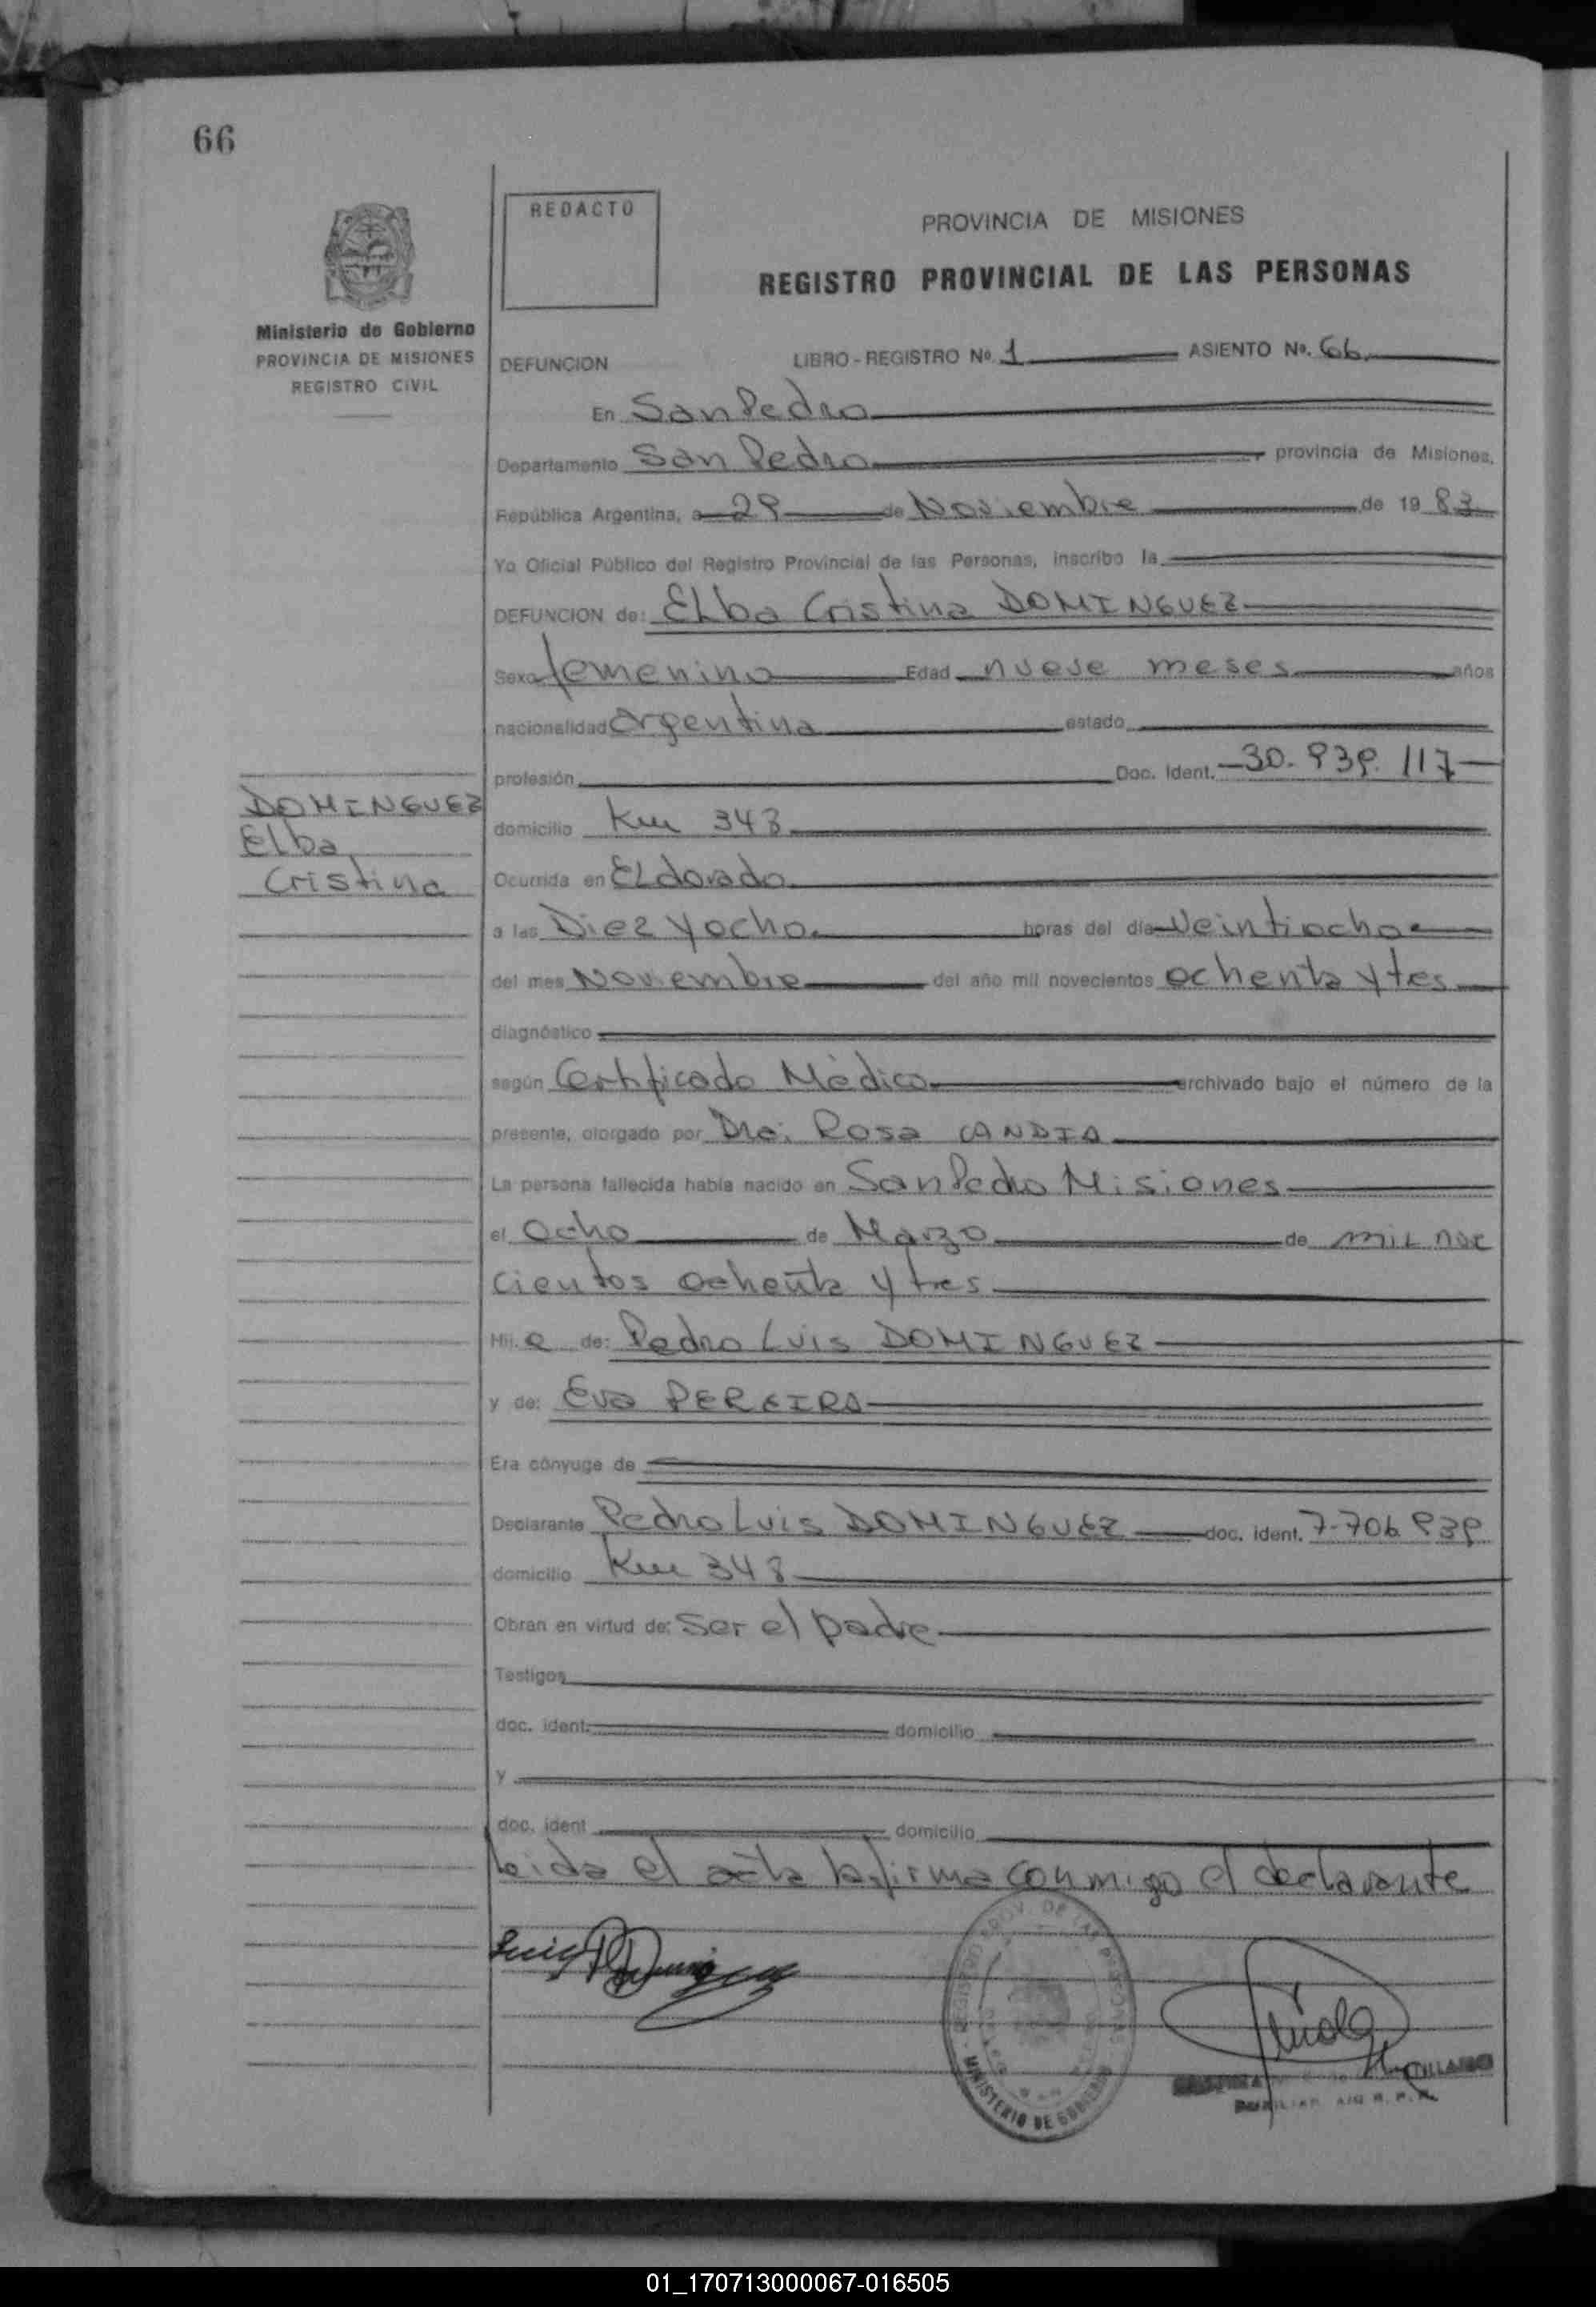 66
REDACTO
PROVINCIA DE MISIONES
REGISTRO PROVINCIAL DE LAS PERSONAS
Ministerio de Gobierno
PROVINCIA DE MISIONES
REGISTRO CIVIL
DEFUNCION LIBRO - REGISTRO No. 1 ASIENTO No. 66
En San Pedro
Departamento San Pedro provincia de Misiones,
República Argentina, a 29 de Noviembre de 19 83
Yo Oficial Público del Registro Provincial de las Personas, inscribo la
DEFUNCION de: Elba Cristina DOMINGUEZ
Sexo femenino Edad nueve meses años
nacionalidad Argentina estado
profesión Doc. Ident. 30.939.117
DOMINGUEZ
Elba
Cristina
domicilio Km 343
Ocurrida en Eldorado
a las Diez y ocho horas del dia Veintiocho
del mes Noviembre del año mil novecientos ochenta y tres
diagnóstico
según Certificado Mèdico archivado bajo el número de la
presente, otorgado por Dra: Rosa CANDIA
La persona fallecida había nacido en San Pedro Misiones
el Ocho de Marzo de mil nov
cientos ochenta y tres
Hij a de: Pedro Luis DOMINGUEZ
y de: Eva PEREIRA
Era cónyuge de
Declarante Pedro Luis DOMINGUEZ doc. ident. 7.706.939
domicilio Km 343
Obran en virtud de: Ser el padre
Testigos
doc. ident. domicilio
y
doc. ident domicilio
leida el acta la firma conmigo el declarante
MINISTERIO DE GOBIERNO
01_170713000067-016505